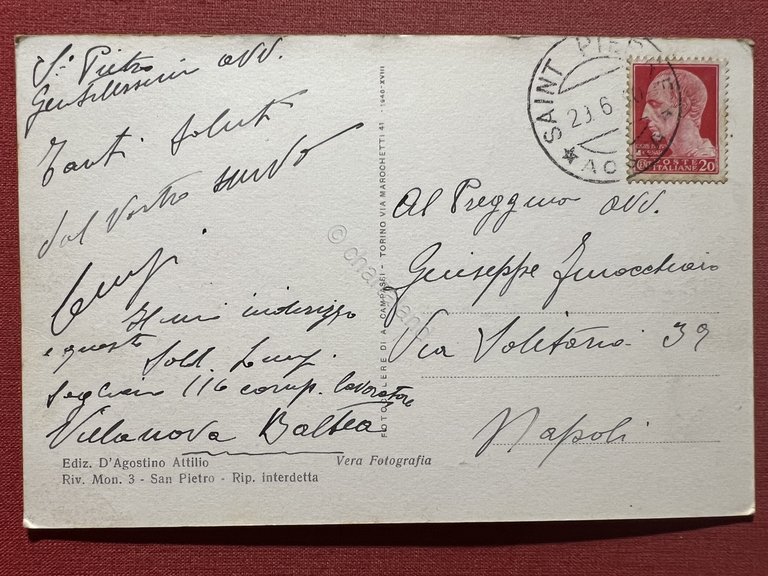 S. Pietro
Gentilissimo avv.
Tanti saluti
dal vostro servo
Luigi
Il mio indirizzo
e questo
Sold. Luigi
116 comp. lavoratore
Villanova Baltea
Ediz. D'Agostino Attilio
Riv. Mon. 3 - San Pietro - Rip. interdetta
Vera Fotografia
FOTOCELERE DI A. CAMPASSI - TORINO VIA MAROCHETTI 41 - 1940-XVIII
SAINT PIERRE
20.6
AOSTA
POSTE
ITALIANE 20
Al Preggmo avv.
Giuseppe Finocchiaro
Via Solitaria 39
Napoli